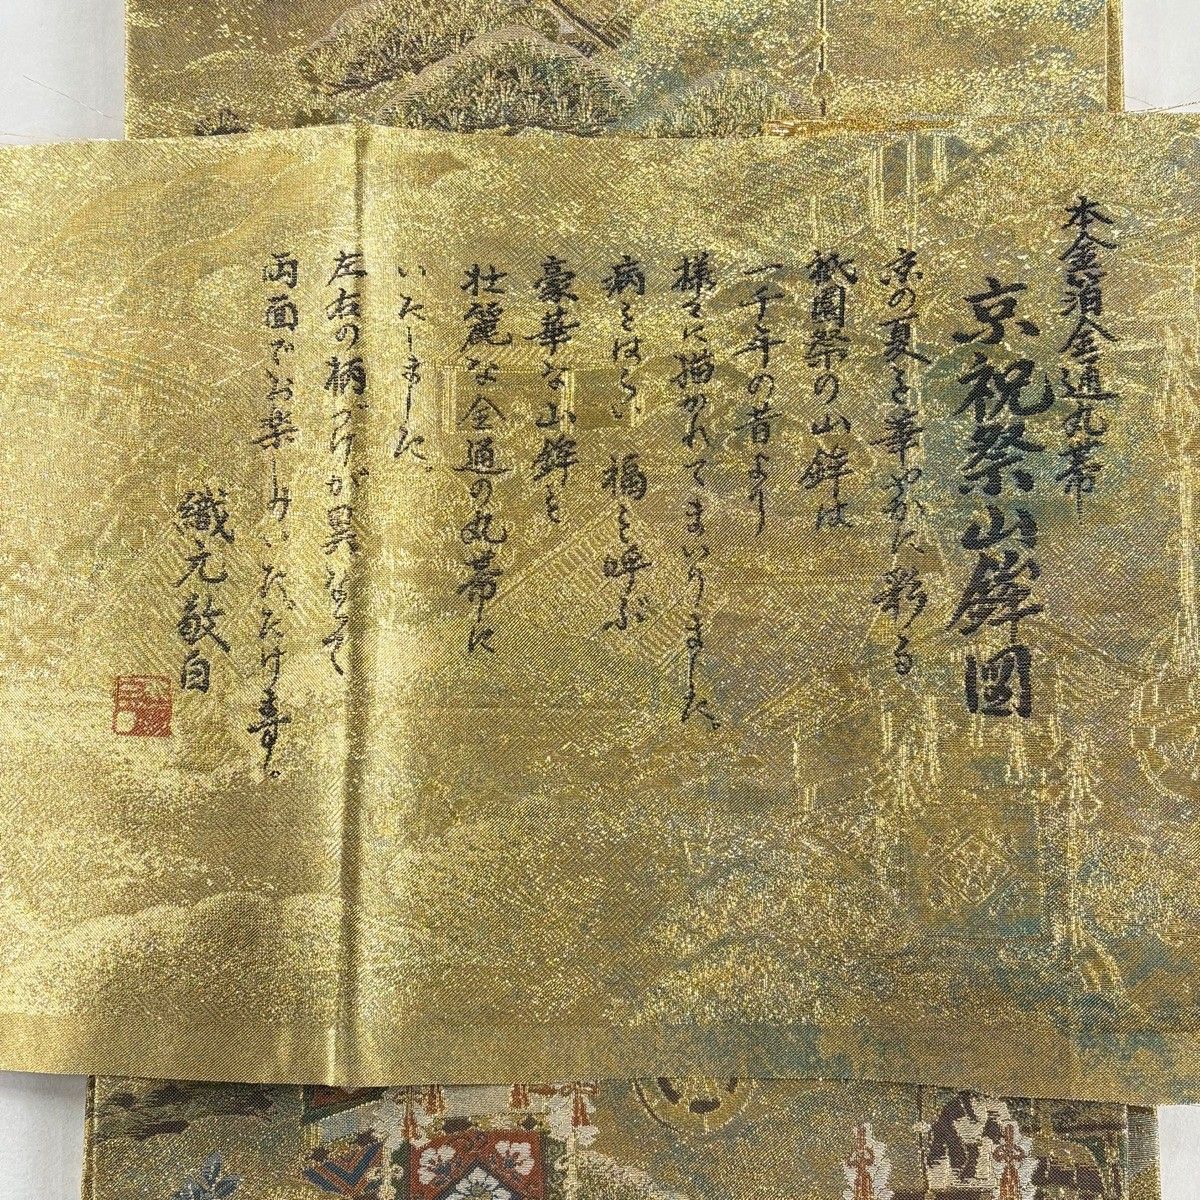 本金箔全通丸帯
京祝祭山鉾図
京の夏を華やかに彩る
祇園祭の山鉾は
一千年の昔より
様々に描かれてまいりました。
病をはらい福を呼ぶ
豪華な山鉾を
壮麗な全通の丸帯に
いたしました。
左右の柄づけが異なって
両面でお楽しみいただけ寿。
織元敬白